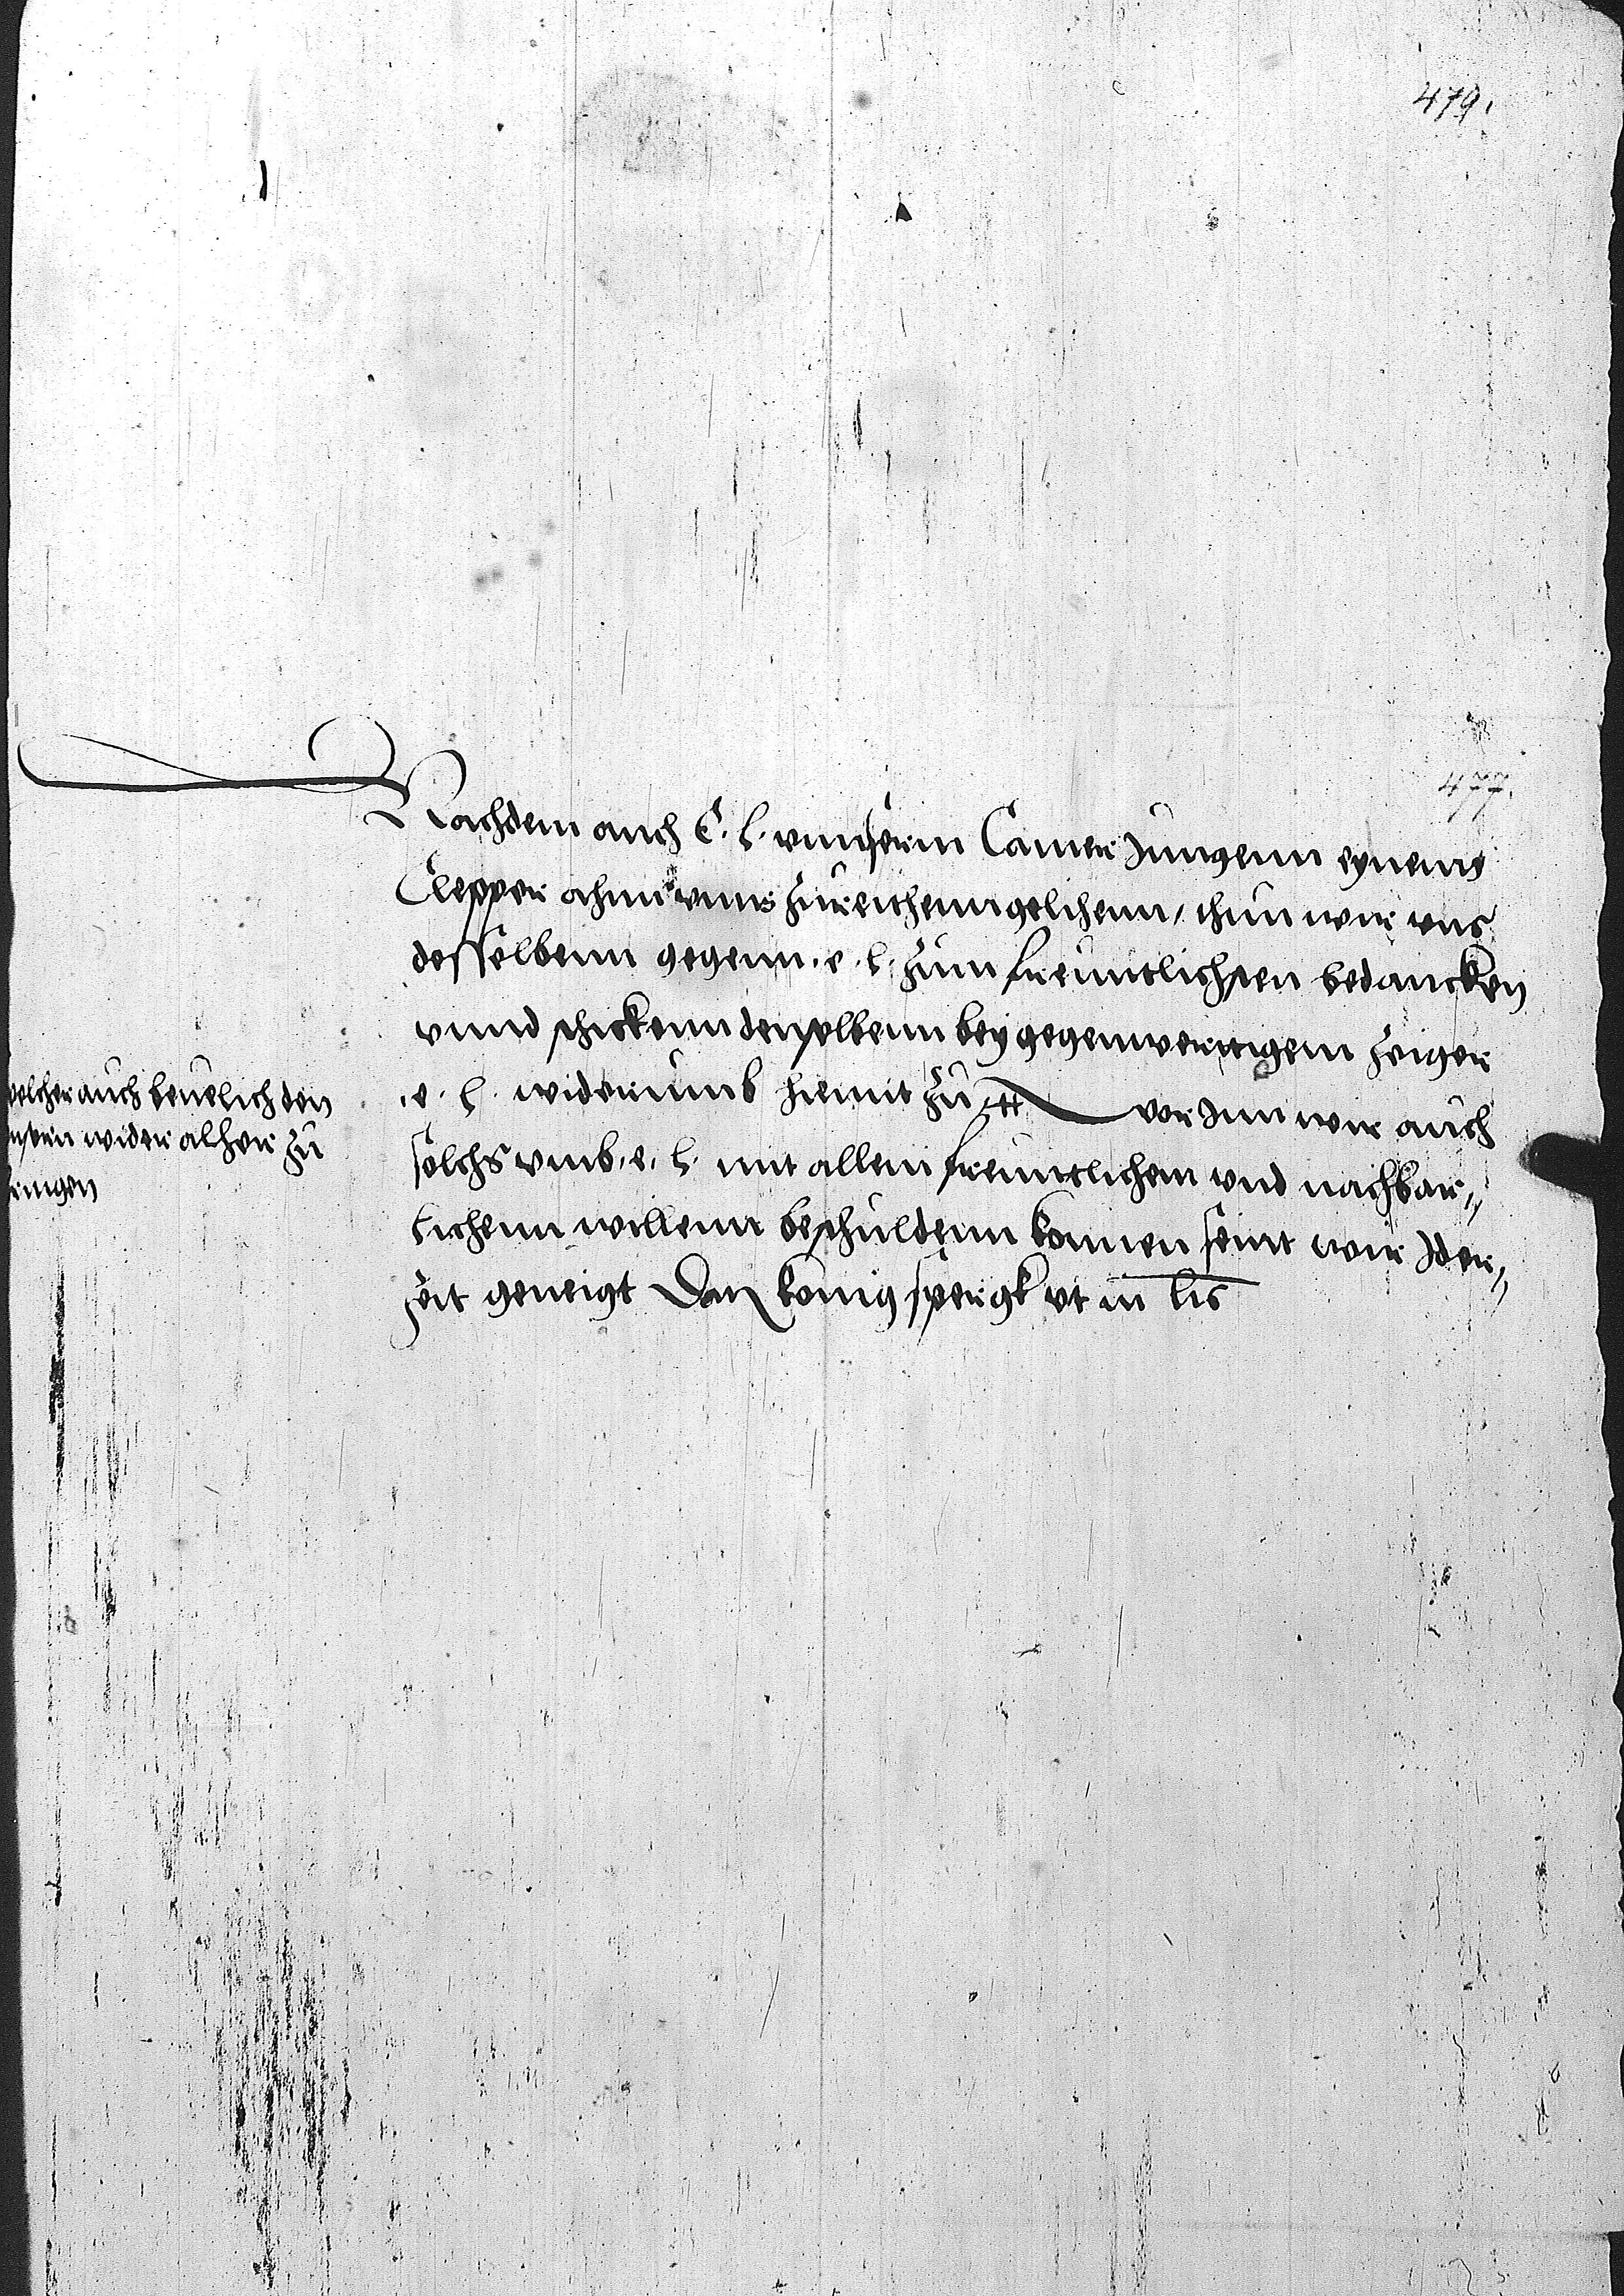 479.
477.
Nachdem auch E. l. vnnserm Camer Jungenn eynenn
Clepper ahnn vnns zureichenn gelihenn, thun wir vns
desselbenn gegenn .e. l. zum freuntlichsten bedancken
vnnd schickenn denselbenn bey gegenwerttigem zeiger
.e. l. widerumb hiemit zu vor Jnn wir auch
solchs vmb .e. l. mit allem freuntlichem vnd nachbar,,
lichenn willenn beschuldenn konnen seint wir Jder,,
zeit geneigt Datz konigspergk vt in lis
welcher auch beuelich den
wider alher zu
bringen